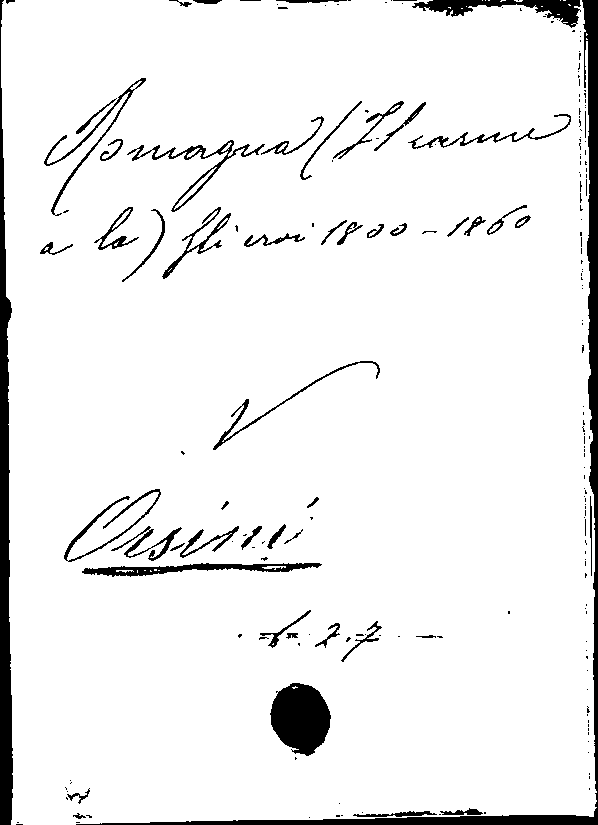 Romagna (Il carme
a la) gli eroi 1800-1860
V
Orsini
6.27